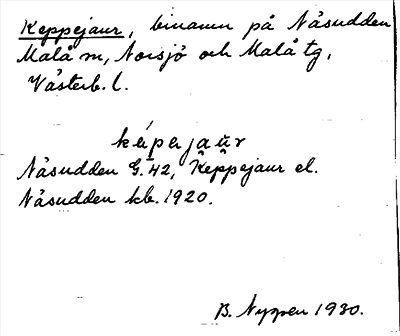 Keppejaur, binamn på Näsudden
Malå sn, Norsjö och Malå tg,
Västerb. l.
képejaūr
Näsudden G. 42, Keppejaur el.
Näsudden kb. 1920.
B. Nygren 1930.